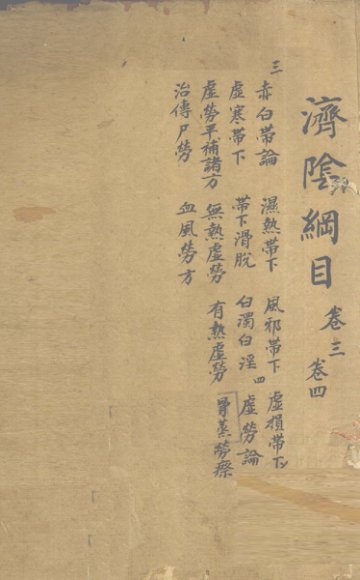 濟陰綱目 卷三 卷四
三 赤白帶論 濕熱帶下 風邪帶下 虛損帶下
虛寒帶下 帶下滑脫 白濁白淫 四 虛勞論
虛勞平補諸方 無熱虛勞 有熱虛勞 骨蒸勞瘵
治傳尸勞 血風勞方